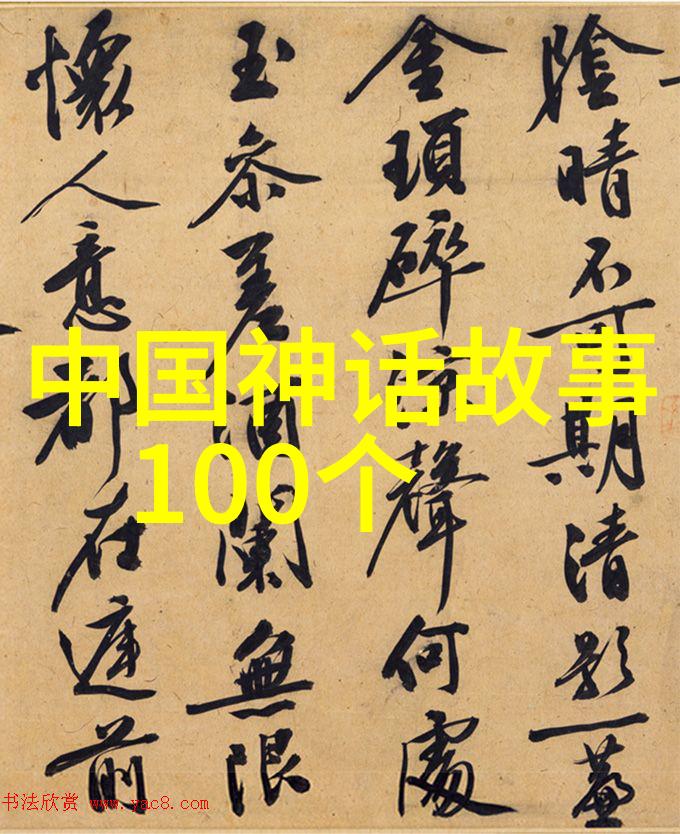 陰晴不可期清影一
金瑣碎涼聲何處
玉參差酒闌無限
懷人意都在庭前
中国神话故事
100个
书法欣赏 www.yac8.com